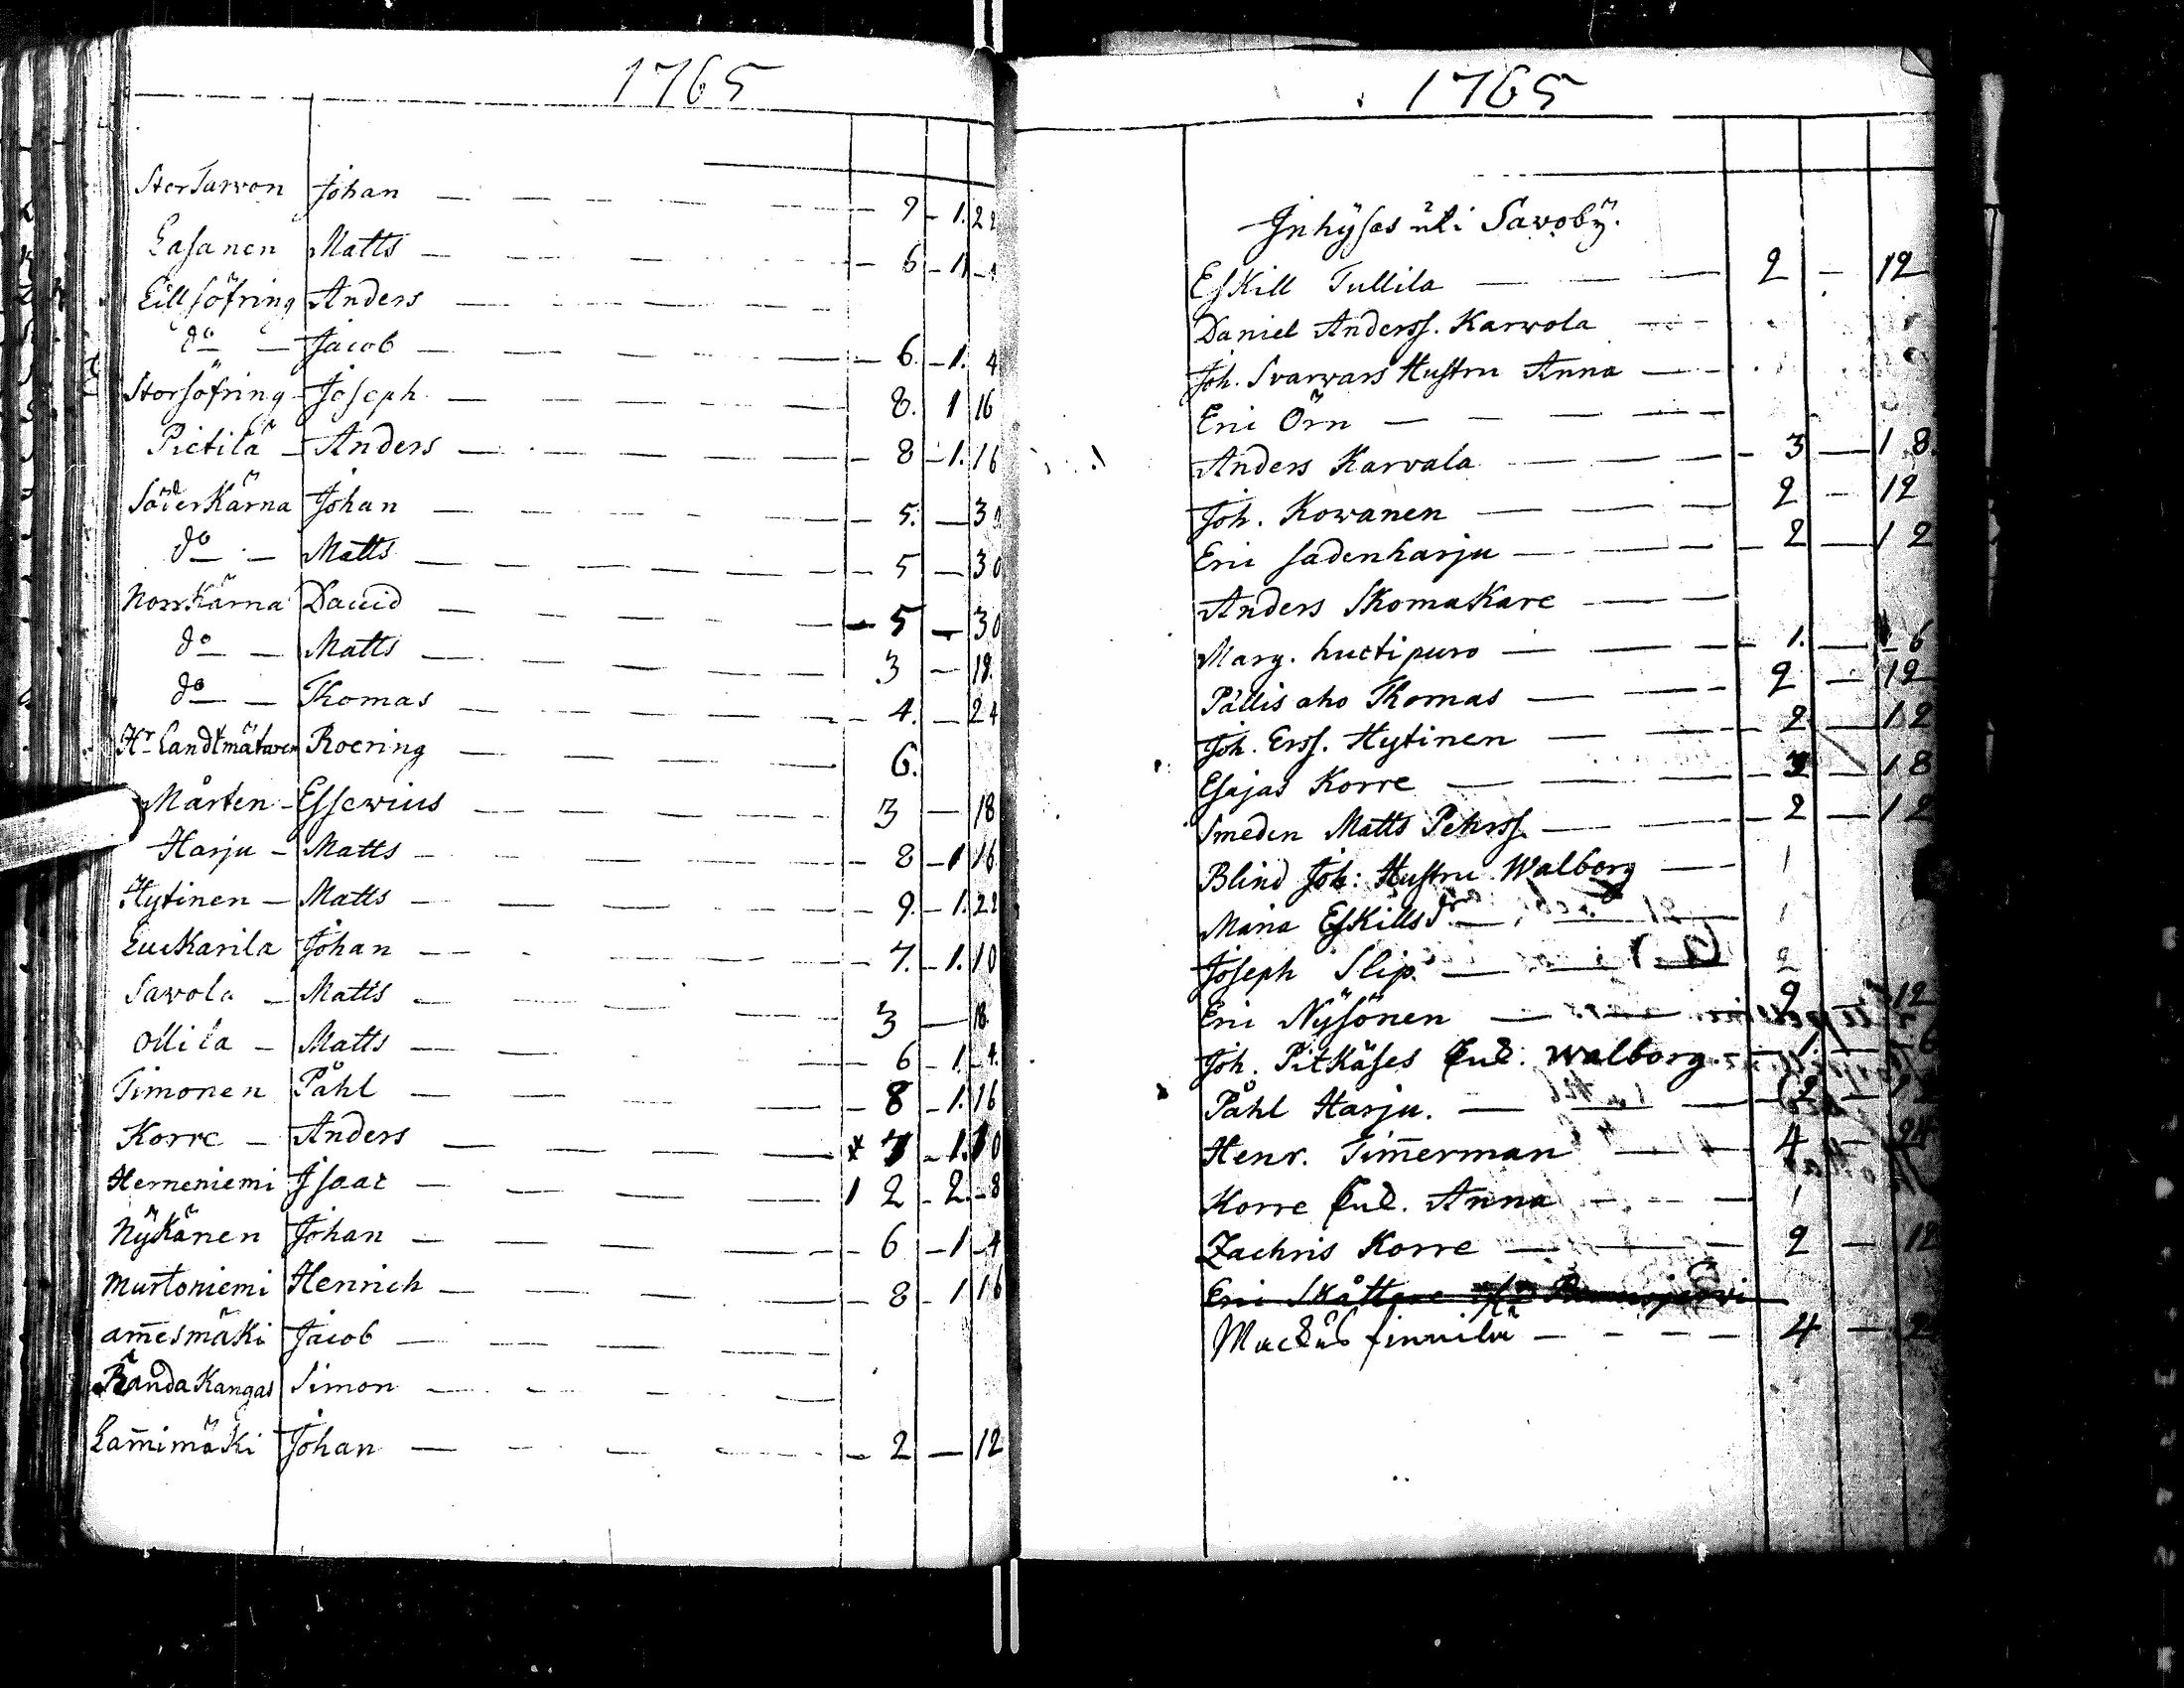 1765
StorTarvon Johan — 9 — 1. 22
Lasanen Matts — 6 — 1 — 4
Lillsöfring Anders —
do — Jacob — 6. — 1. 4
Storsöfring Joseph — 8. 1 16
Pietilä — Anders — 8 — 1. 16
SöderKärna Johan — 5. — 30
do — Matts — 5 — 30
NorrKärna David — 5 — 30
do — Matts — 3 — 18.
do — Thomas — 4. — 24
Hr Landtmätaren Roering — 6.
Mårten — Essewius — 3 — 18
Harju — Matts — 8 — 1 16
Hytinen — Matts — 9. — 1. 22
LucKarila Johan — 7. — 1. 10
Savola — Matts — 3 — 18
Ollila — Matts — 6 — 1. — 4.
Timonen Påhl — 8 — 1. 16
Korre — Anders — 7 — 1. 10
Herneniemi Isaac — 12 — 2. — 8
NyKänen Johan — 6 — 1 — 4
Murtoniemi Henrich — 8 — 1 16
am̄esmäKi Jacob —
RändaKangas Simon —
Lam̄imäKi Johan — 2 — 12
1765
Inhyses uti Savoby.
EsKill Tullila — 2 — 12
Daniel Anderss. Karvola —
Joh. Svarvars Hustru Anna —
Eric Örn —
Anders Karvala — 3 — 18.
Joh. Kowanen — 2 — 12
Eric Sadenharju — 2 — 12
Anders SKomaKare —
Marg. huctipuro — 1. — 6
Pällis aho Thomas — 2 — 12
Joh. Erss. Hytinen — 2 — 12
Esajas Korre — 3 — 18
Smeden Matts Pehrss. — 2 — 12
Blind Joh: Hustru Walborg — 1
Maria EsKillsdr — 1
Joseph Slip. — 2
Eric Nysönen — 2 12
Joh. PitKäses Enk. Walborg. — 1. — 6
Påhl Harju. — 2 — 12
Henr. Tim̄erman — 4 — 24
Korre Enk. Anna — 1
Zachris Korre — 2 — 12
Eric SKåttare
Finnilä — 4 —